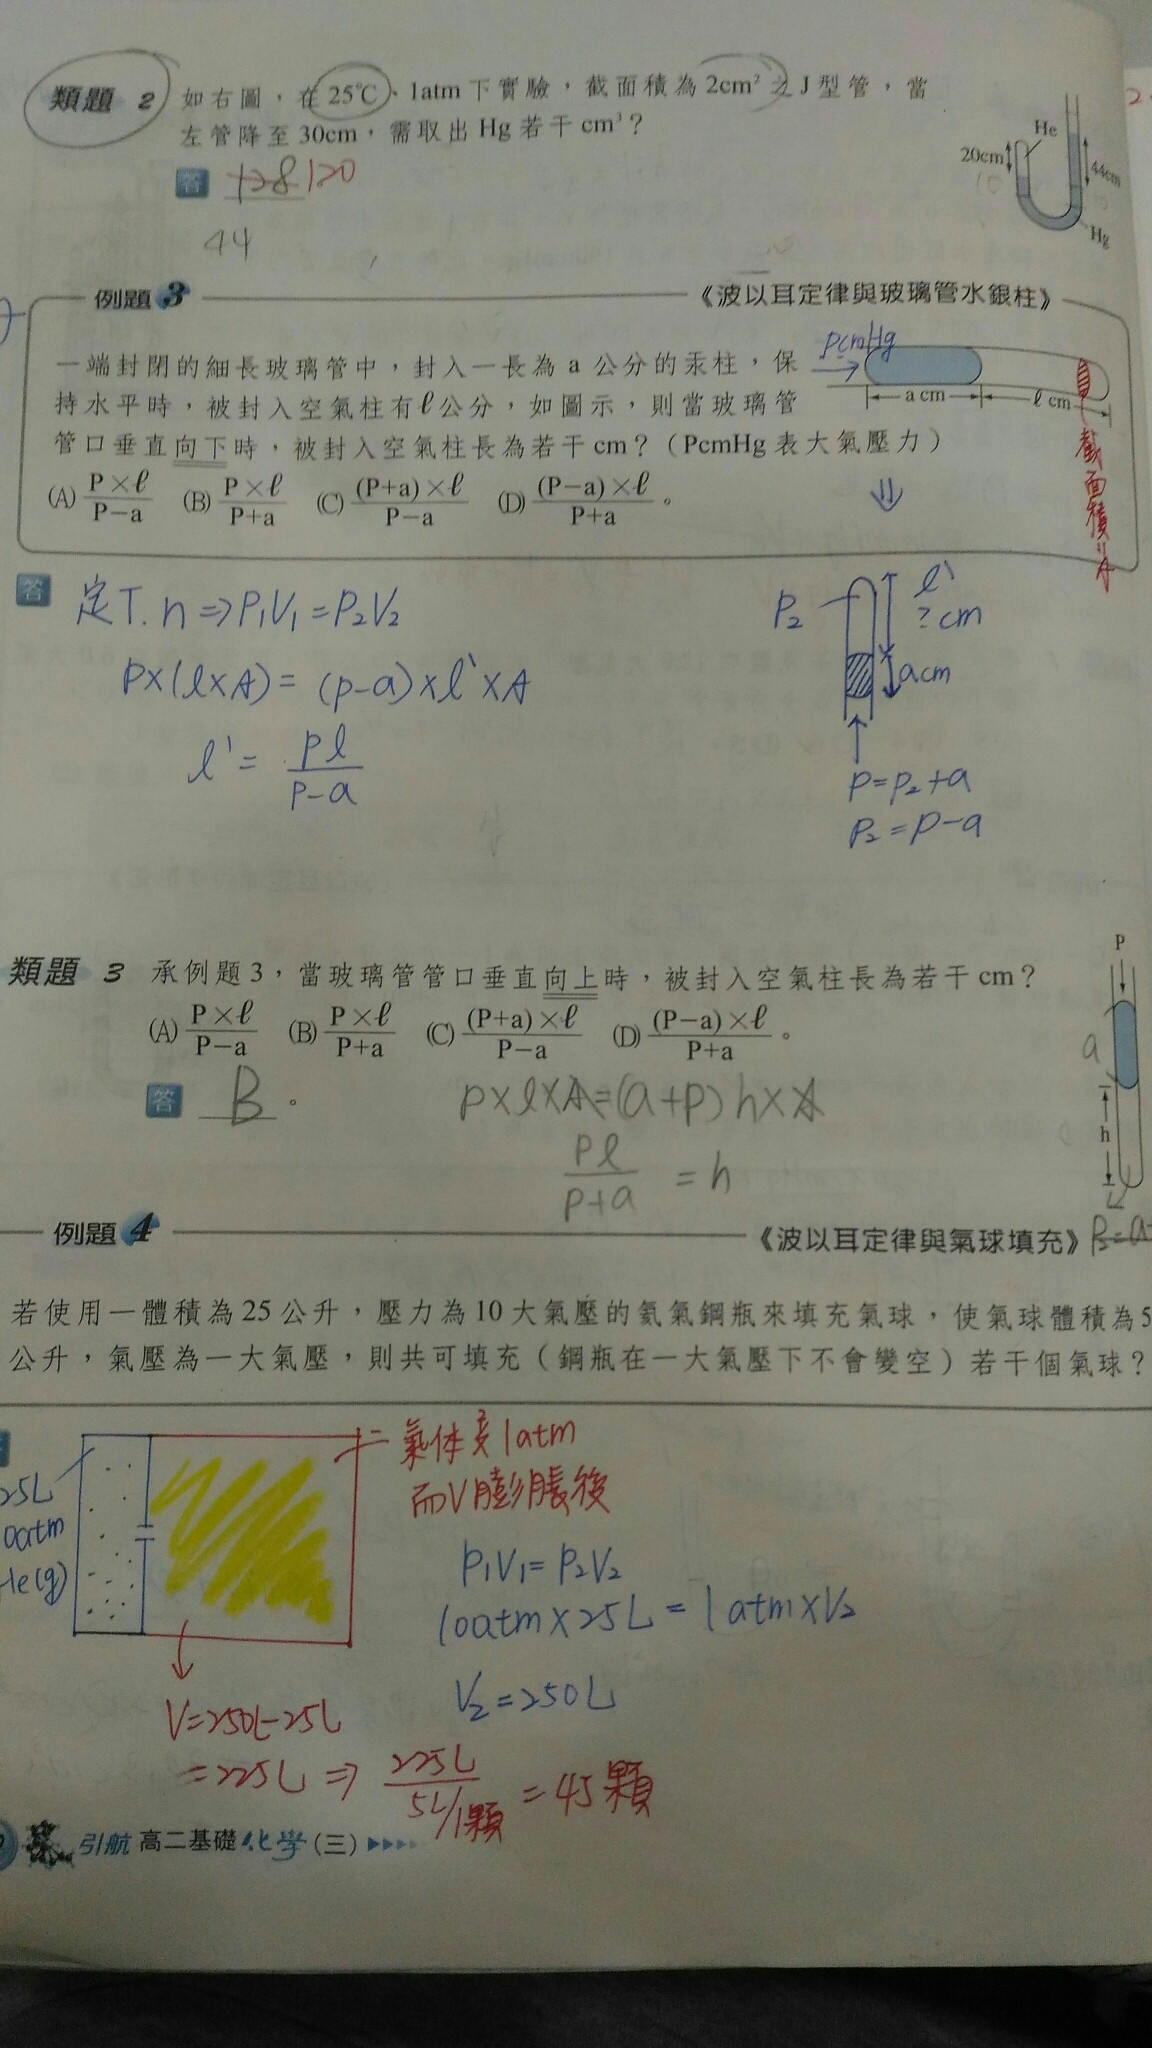 類題 2 如右圖，在25℃、1atm下實驗，截面積為2cm²之J型管，當
左管降至30cm，需取出Hg若干cm³？
He
20cm
44cm
Hg
答 128 120
44
例題 3 《波以耳定律與玻璃管水銀柱》
一端封閉的細長玻璃管中，封入一長為a公分的汞柱，保
持水平時，被封入空氣柱有ℓ公分，如圖示，則當玻璃管
管口垂直向下時，被封入空氣柱長為若干cm？（PcmHg表大氣壓力）
(A) P×ℓ/P−a (B) P×ℓ/P+a (C) (P+a)×ℓ/P−a (D) (P−a)×ℓ/P+a。
pcmHg
a cm
ℓ cm
截面積=A
答 定T.n⇒P₁V₁=P₂V₂
P×(ℓ×A)=(p-a)×ℓ'×A
ℓ'=pℓ/p-a
P₂
ℓ'
?cm
acm
P=P₂+a
P₂=P-a
類題 3 承例題3，當玻璃管管口垂直向上時，被封入空氣柱長為若干cm？
(A) P×ℓ/P−a (B) P×ℓ/P+a (C) (P+a)×ℓ/P−a (D) (P−a)×ℓ/P+a。
答 B。
P×ℓ×A=(a+p)h×A
Pℓ/P+a=h
P
a
h
例題 4 《波以耳定律與氣球填充》
若使用一體積為25公升，壓力為10大氣壓的氦氣鋼瓶來填充氣球，使氣球體積為5
公升，氣壓為一大氣壓，則共可填充（鋼瓶在一大氣壓下不會變空）若干個氣球？
25L
0atm
He(g)
氣体變1atm
而V膨脹後
P₁V₁=P₂V₂
10atm×25L=1atm×V₂
V₂=250L
V=250L-25L
=225L⇒225L/5L/1顆=45顆
引航 高二基礎化學(三)